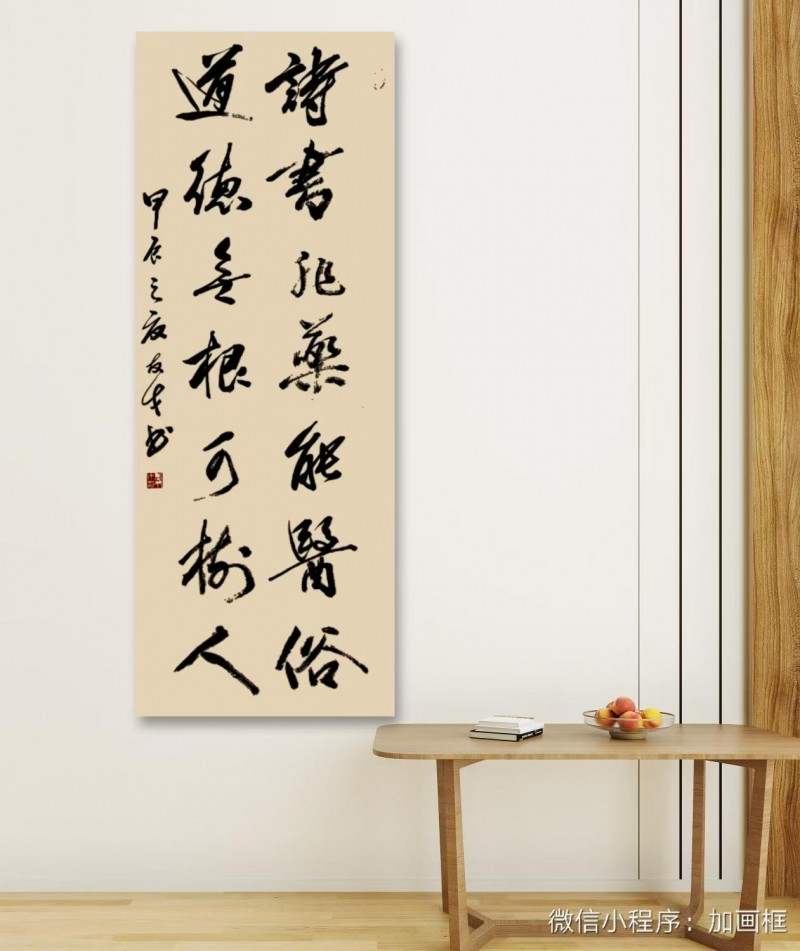 詩書非藥能醫俗
道德無根可樹人
甲辰之夏友生书
微信小程序：加画框